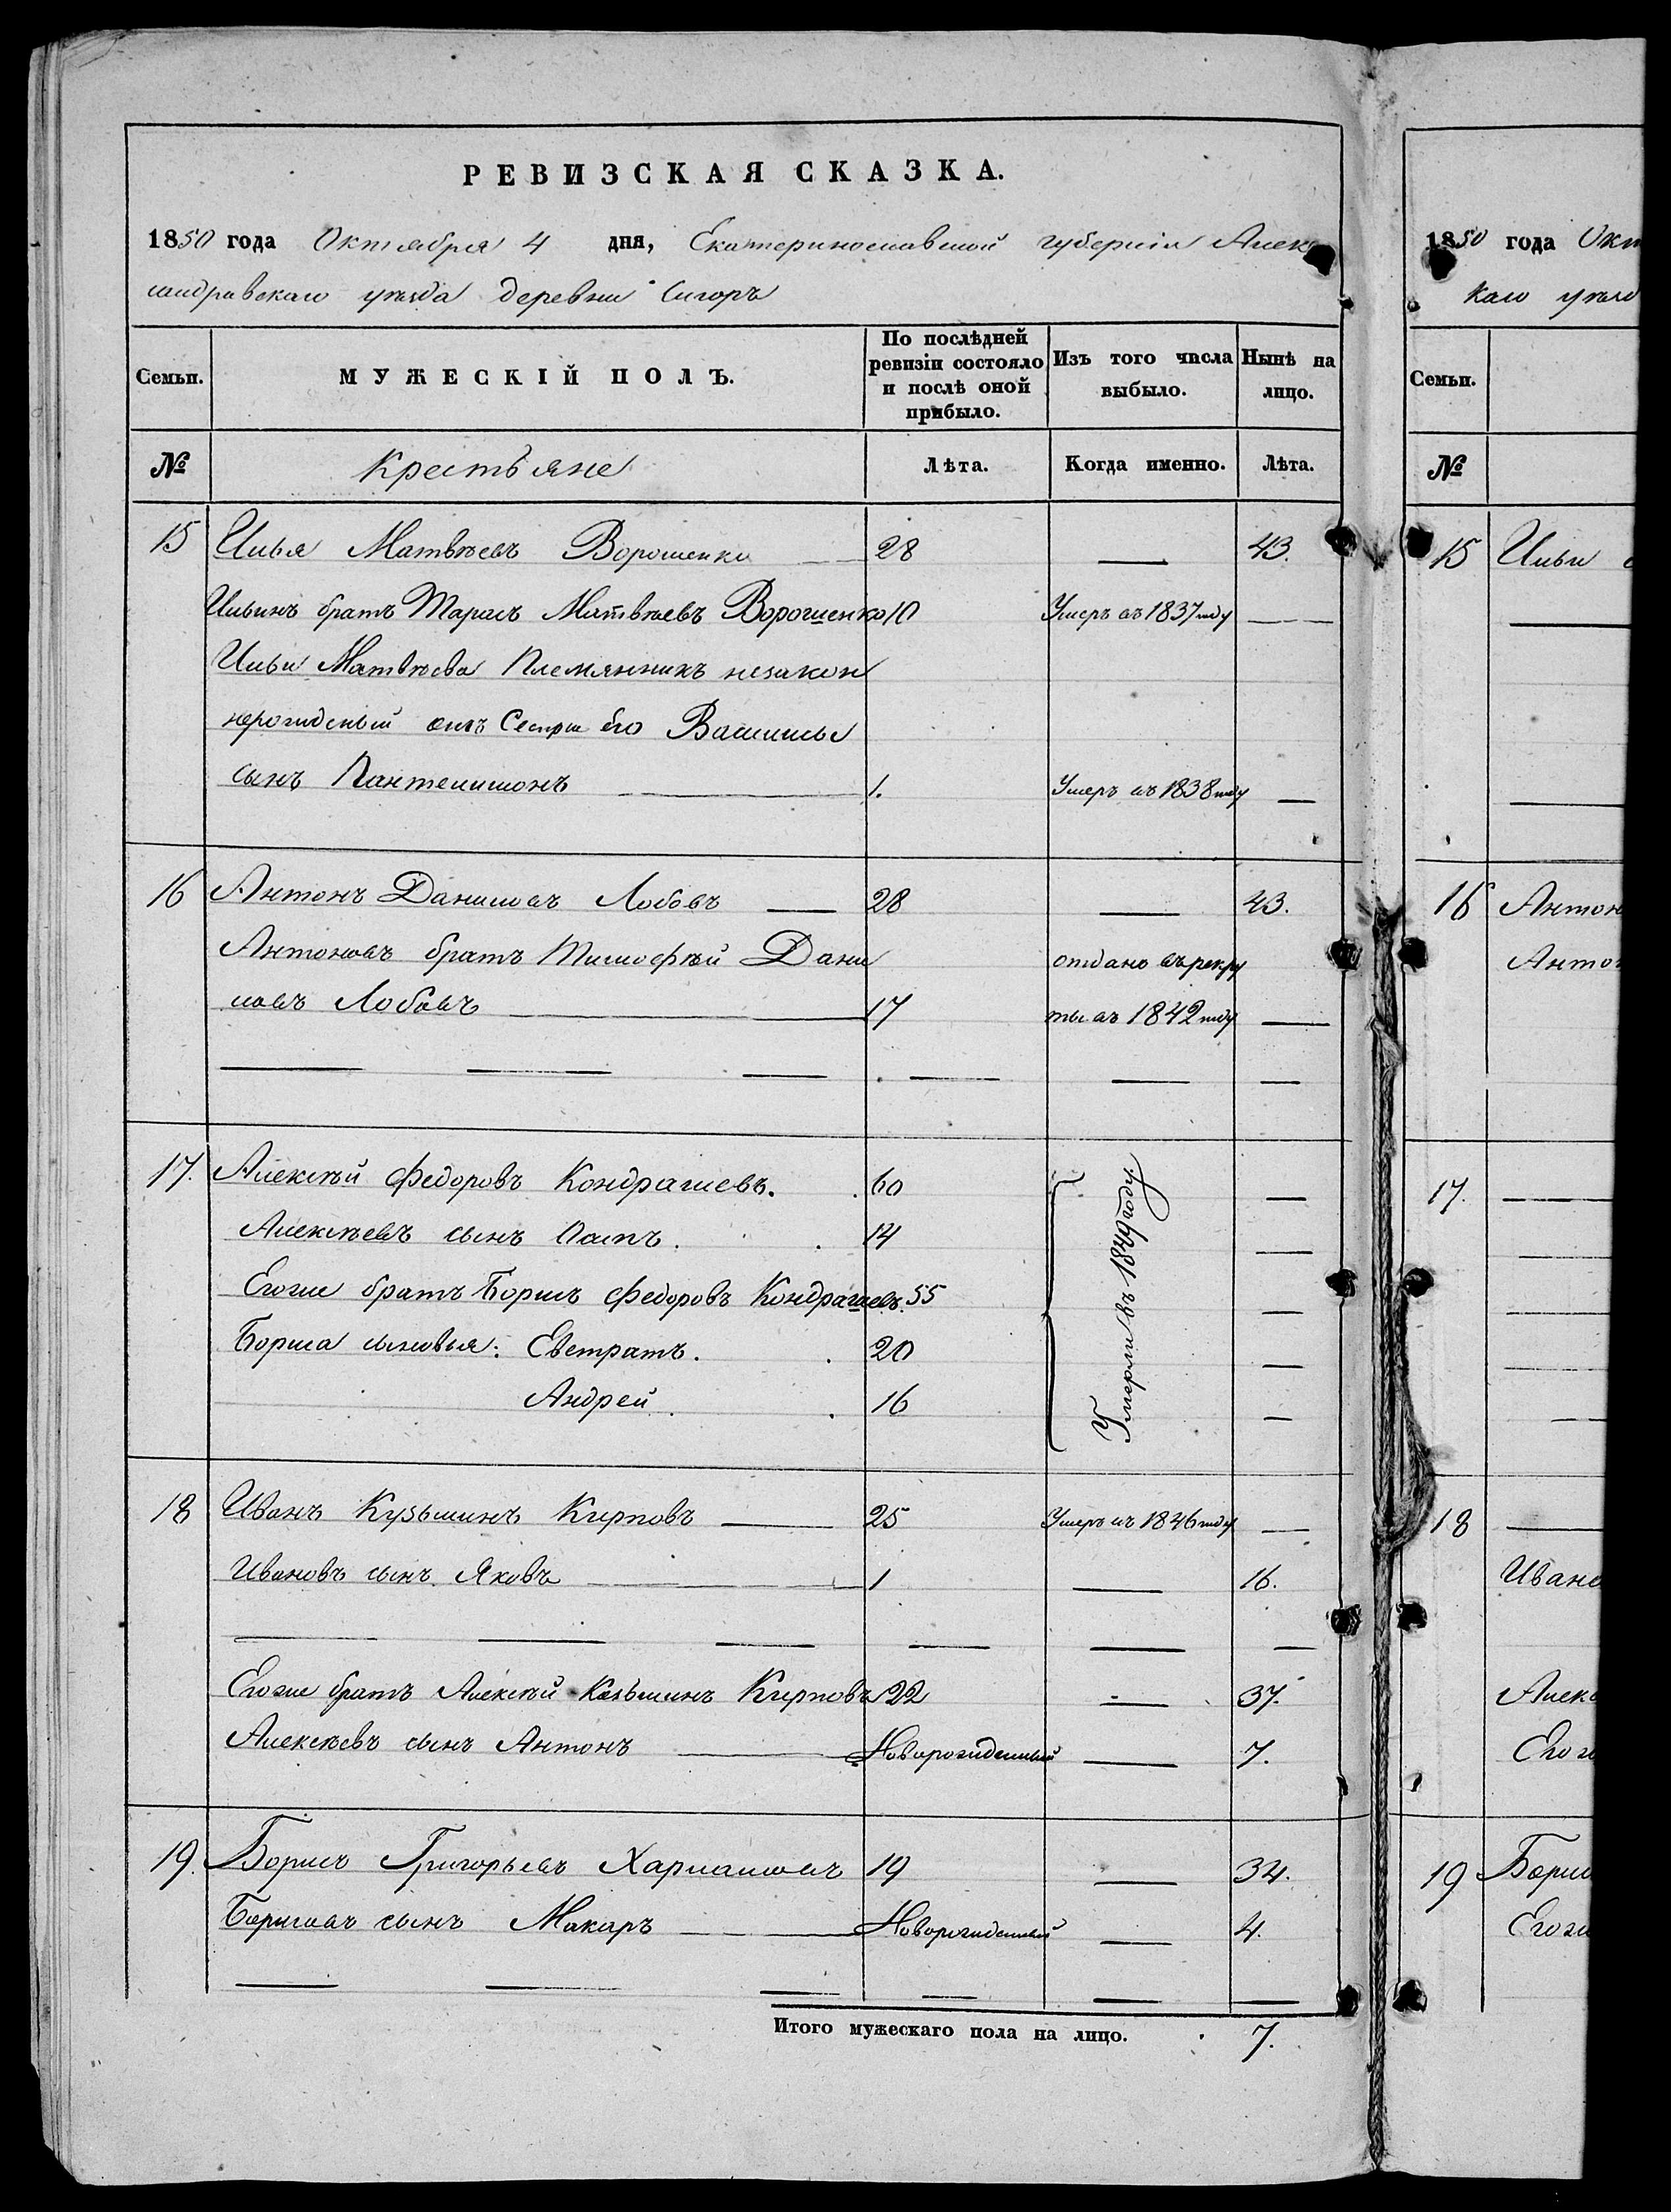 РЕВИЗСКАЯ СКАЗКА.
1850 года Октября 4 дня, Екатеринославской губерніи Алек
сандравскаго уѣзда деревни
Семьи. МУЖЕСКІЙ ПОЛЪ. По послѣдней ревизіи состояло и послѣ оной прибыло. Изъ того числа выбыло. Нынѣ на лицо.
№ Крестьяне Лѣта. Когда именно. Лѣта.
15 Илья Матвѣевъ Ворошенко 28 — 43.
Ильинъ братъ Тарасъ Матвѣевъ Ворошенко 10 Умеръ въ 1837 году —
Ильи Матвѣева Племянникъ незакон
норожденый отъ Сестры его Василисы
сынъ Пантелимонъ 1. Умеръ въ 1838 году —
16 Антонъ Даниловъ Лобовъ — 28 — 43.
Антоновъ братъ Тимофѣй Дани отданъ въ рекру
ловъ Лобовъ — 17 ты въ 1842 году —
17. Алексѣй Федоровъ Кондрашевъ. 60 Умерли въ 1849 году. —
Алексѣевъ сынъ 14 —
Егоже братъ Борисъ Федоровъ Кондрашевъ. 55 —
Бориса сыновья: Евстратъ. 20 —
Андрей. 16 —
18 Иванъ Кузьминъ Кирповъ — 25 Умеръ въ 1846 году —
Ивановъ сынъ Яковъ — 1 — 16.
Егоже братъ Алексѣй Кузьминъ Кирповъ 22 — 37.
Алексѣевъ сынъ Антонъ — Новорожденный — 7.
19. Борисъ Григорьевъ 19 — 34.
Борисовъ сынъ Макаръ — Новорожденный — 4.
Итого мужескаго пола на лицо. 7.
1850 года Окт
каго уѣзд
Семьи.
№
15 Ильи
16 Антон
Антон
17.
18
Ивано
Алекс
Егож
19 Борис
Егож